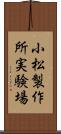 小松製作
所実験場